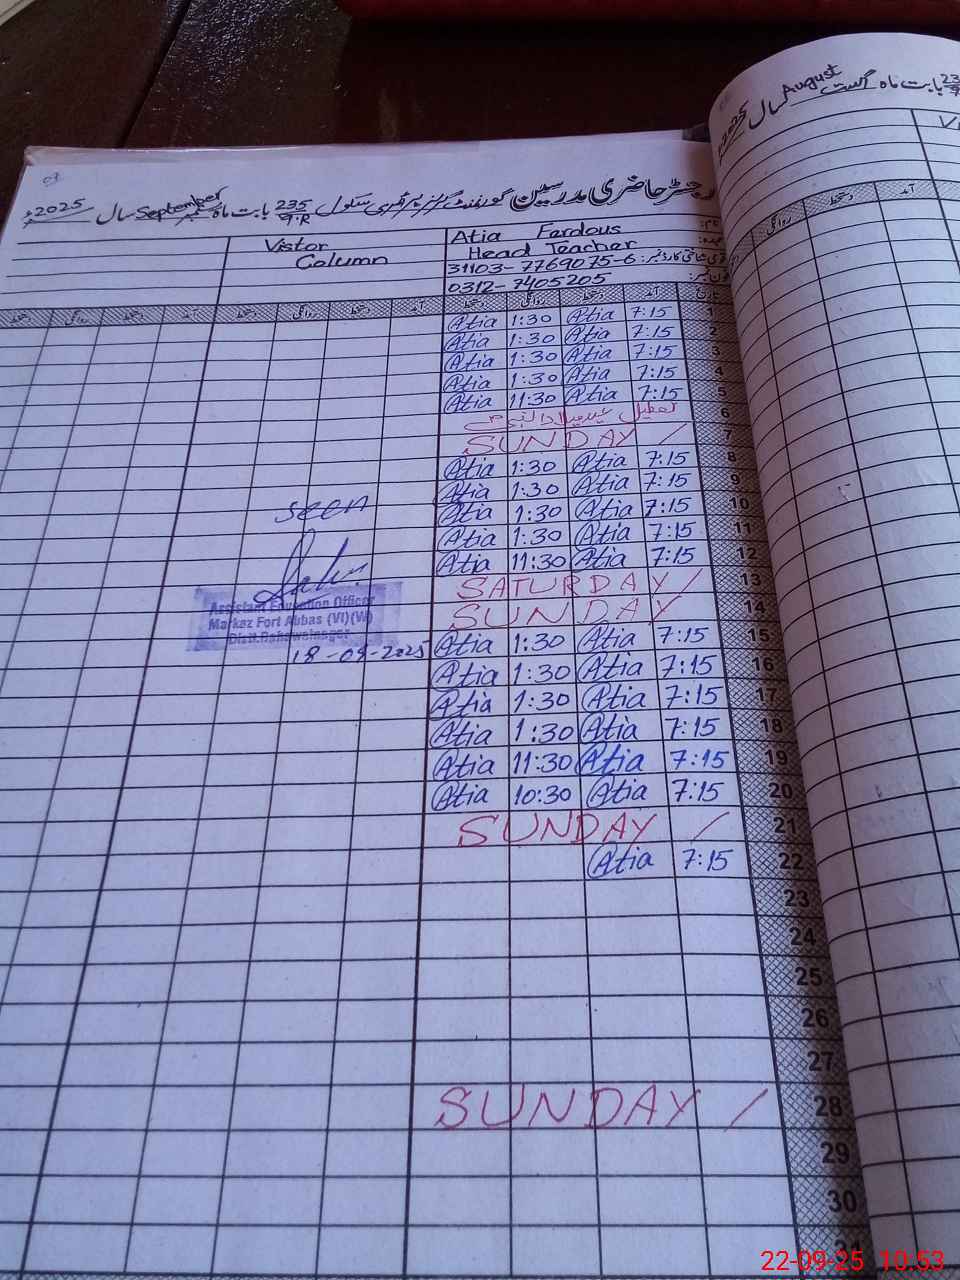 03
رجسٹر حاضری مدرسین گورنمنٹ گرلز پرائمری سکول 235/9.R بابت ماہ ستمبر September سال 2025ء
Vistor
Column
Atia Fardous
Head Teacher
31103-7769075-6
0312-7405205
دستخط روانگی دستخط آمد دستخط روانگی دستخط آمد دستخط روانگی دستخط آمد
Atia 1:30 Atia 7:15 1
Atia 1:30 Atia 7:15 2
Atia 1:30 Atia 7:15 3
Atia 1:30 Atia 7:15 4
Atia 11:30 Atia 7:15 5
تعطیل عید میلاد النبی 6
SUNDAY / 7
Atia 1:30 Atia 7:15 8
Atia 1:30 Atia 7:15 9
Atia 1:30 Atia 7:15 10
Atia 1:30 Atia 7:15 11
Atia 11:30 Atia 7:15 12
SATURDAY / 13
SUNDAY / 14
Atia 1:30 Atia 7:15 15
Atia 1:30 Atia 7:15 16
Atia 1:30 Atia 7:15 17
Atia 1:30 Atia 7:15 18
Atia 11:30 Atia 7:15 19
Atia 10:30 Atia 7:15 20
SUNDAY / 21
Atia 7:15 22
23
24
25
26
27
SUNDAY / 28
29
30
31
seen
Assistant Education Officer
Markaz Fort Abbas (VI)(W)
Distt.Bahawalnagar
18-09-2025
2025 سال August اگست بابت ماہ
روانگی دستخط آمد
22-09-25 10:53